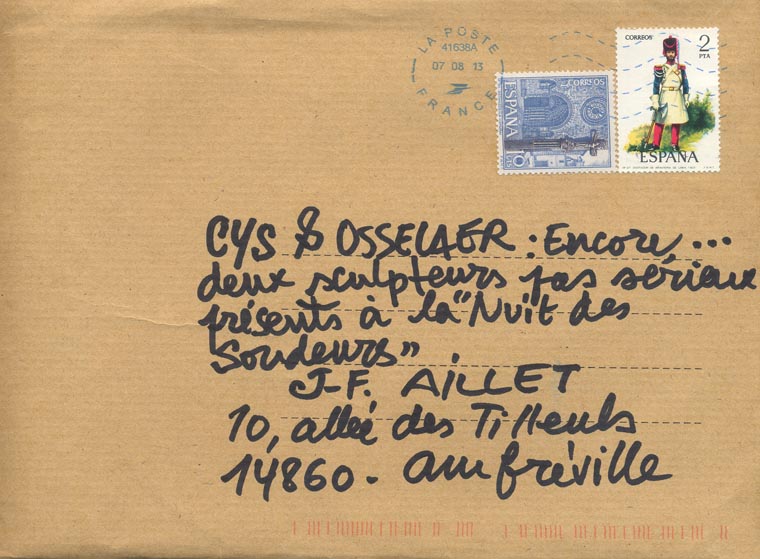 LA POSTE
41638A
07 08 13
FRANCE
CORREOS
2
PTA
ESPAÑA
CORREOS
ESPAÑA
10
CYS & OSSELAER : Encore, ...
deux sculpteurs pas sérieux
présents à la "Nuit des
Soudeurs"
J-F. AILLET
10, allée des Tilleuls
14860. Amfréville